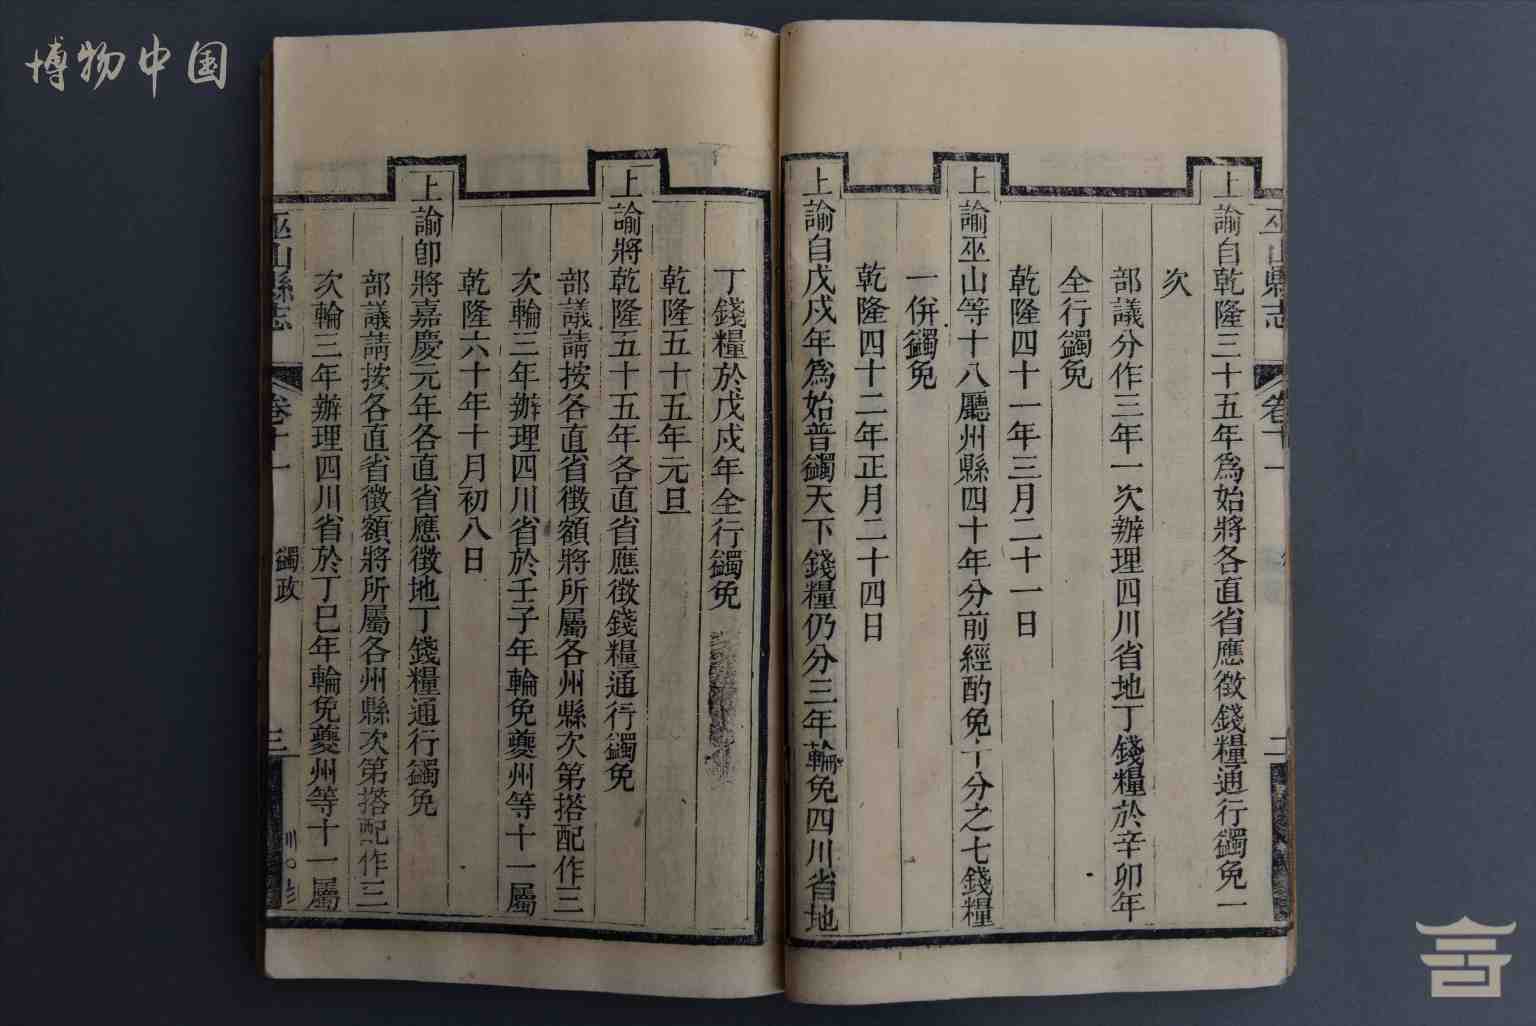 博物中国
巫山縣志
卷十一
二
上諭自乾隆三十五年爲始將各直省應徵錢糧通行蠲免一
次
部議分作三年一次辦理四川省地丁錢糧於辛卯年
全行蠲免
乾隆四十一年三月二十一日
上諭巫山等十八廳州縣四十年分前經酌免十分之七錢糧
一併蠲免
乾隆四十二年正月二十四日
上諭自戊戌年爲始普蠲天下錢糧仍分三年輪免四川省地
丁錢糧於戊戌年全行蠲免
乾隆五十五年元旦
上諭將乾隆五十五年各直省應徵錢糧通行蠲免
部議請按各直省徵額將所屬各州縣次第搭配作三
次輪三年辦理四川省於壬子年輪免夔州等十一屬
乾隆六十年十月初八日
上諭卽將嘉慶元年各直省應徵地丁錢糧通行蠲免
部議請按各直省徵額將所屬各州縣次第搭配作三
次輪三年辦理四川省於丁巳年輪免夔州等十一屬
巫山縣志
卷十一
蠲政
三